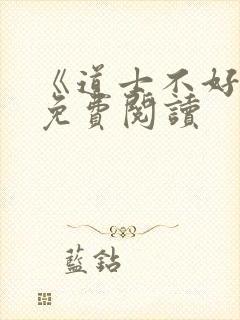 《道士不好
免費閱讀
藍鈷